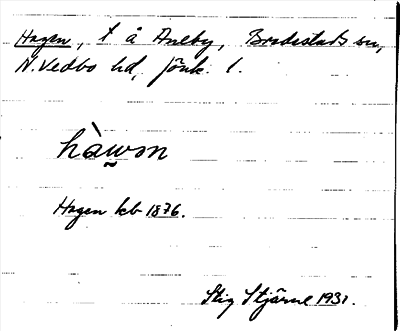 Hagen, t å Aneby, Bredestads sn,
N. Vedbo hd, Jönk. l.
hàwm
Hagen kb 1876.
Stig Stjärne 1931.